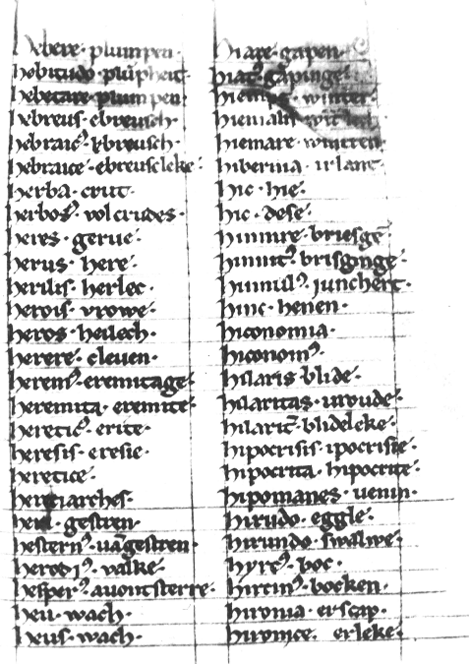 hebere · plumpen ·
hebitudo · plūpheit ·
hebetare · plumpen ·
hebreus · ebreusch ·
hebraic᷒ · ebreusch ·
hebraice · ebreuscleke ·
herba · crut ·
herbos᷒ · vol crudes ·
heres · gerue ·
herus · here ·
herilis · herlec ·
herois · vrowe ·
heros · heilech ·
herere · cleuen ·
herem᷒ · eremitage ·
heremita · eremite ·
heretic᷒ · erite ·
heresis · eresie ·
heretice ·
heresiarches ·
heri · gestren ·
hestern᷒ · uāgestren ·
herodi᷒ · valke ·
hesper᷒ · auontsterre ·
heu · wach ·
heus · wach ·
hiare · gapen ·
hiat᷒ · gapinge ·
hiemps · winter ·
hiemalis
hiemare · winteren
hibernia · irlant ·
hic · hie ·
hic · dese ·
hinnire · briesgē
hinnit᷒ · brisginge ·
hinnul᷒ · junchert ·
hinc · henen ·
hiconomia ·
hiconom᷒ ·
hilaris · blide ·
hilaritas · vroude ·
hilarit̄ · blideleke ·
hipocrisis · ipocrisie ·
hipocrita · hipocrite ·
hipomanes · uenin ·
hirudo · eggle ·
hirundo · swalwe ·
hyrc᷒ · boc ·
hircin᷒ · bocken ·
hironia · erscap ·
hironice · erleke ·